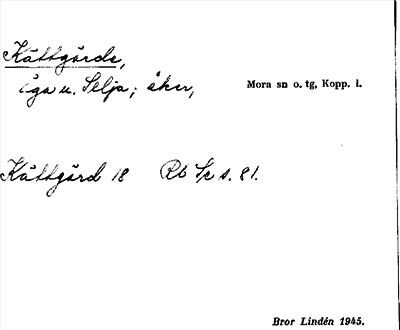 Kättgårde,
äga u. Selja; åker, Mora sn o. tg, Kopp. l.
Kättgård 18 Rb Sp s. 81.
Bror Lindén 1945.